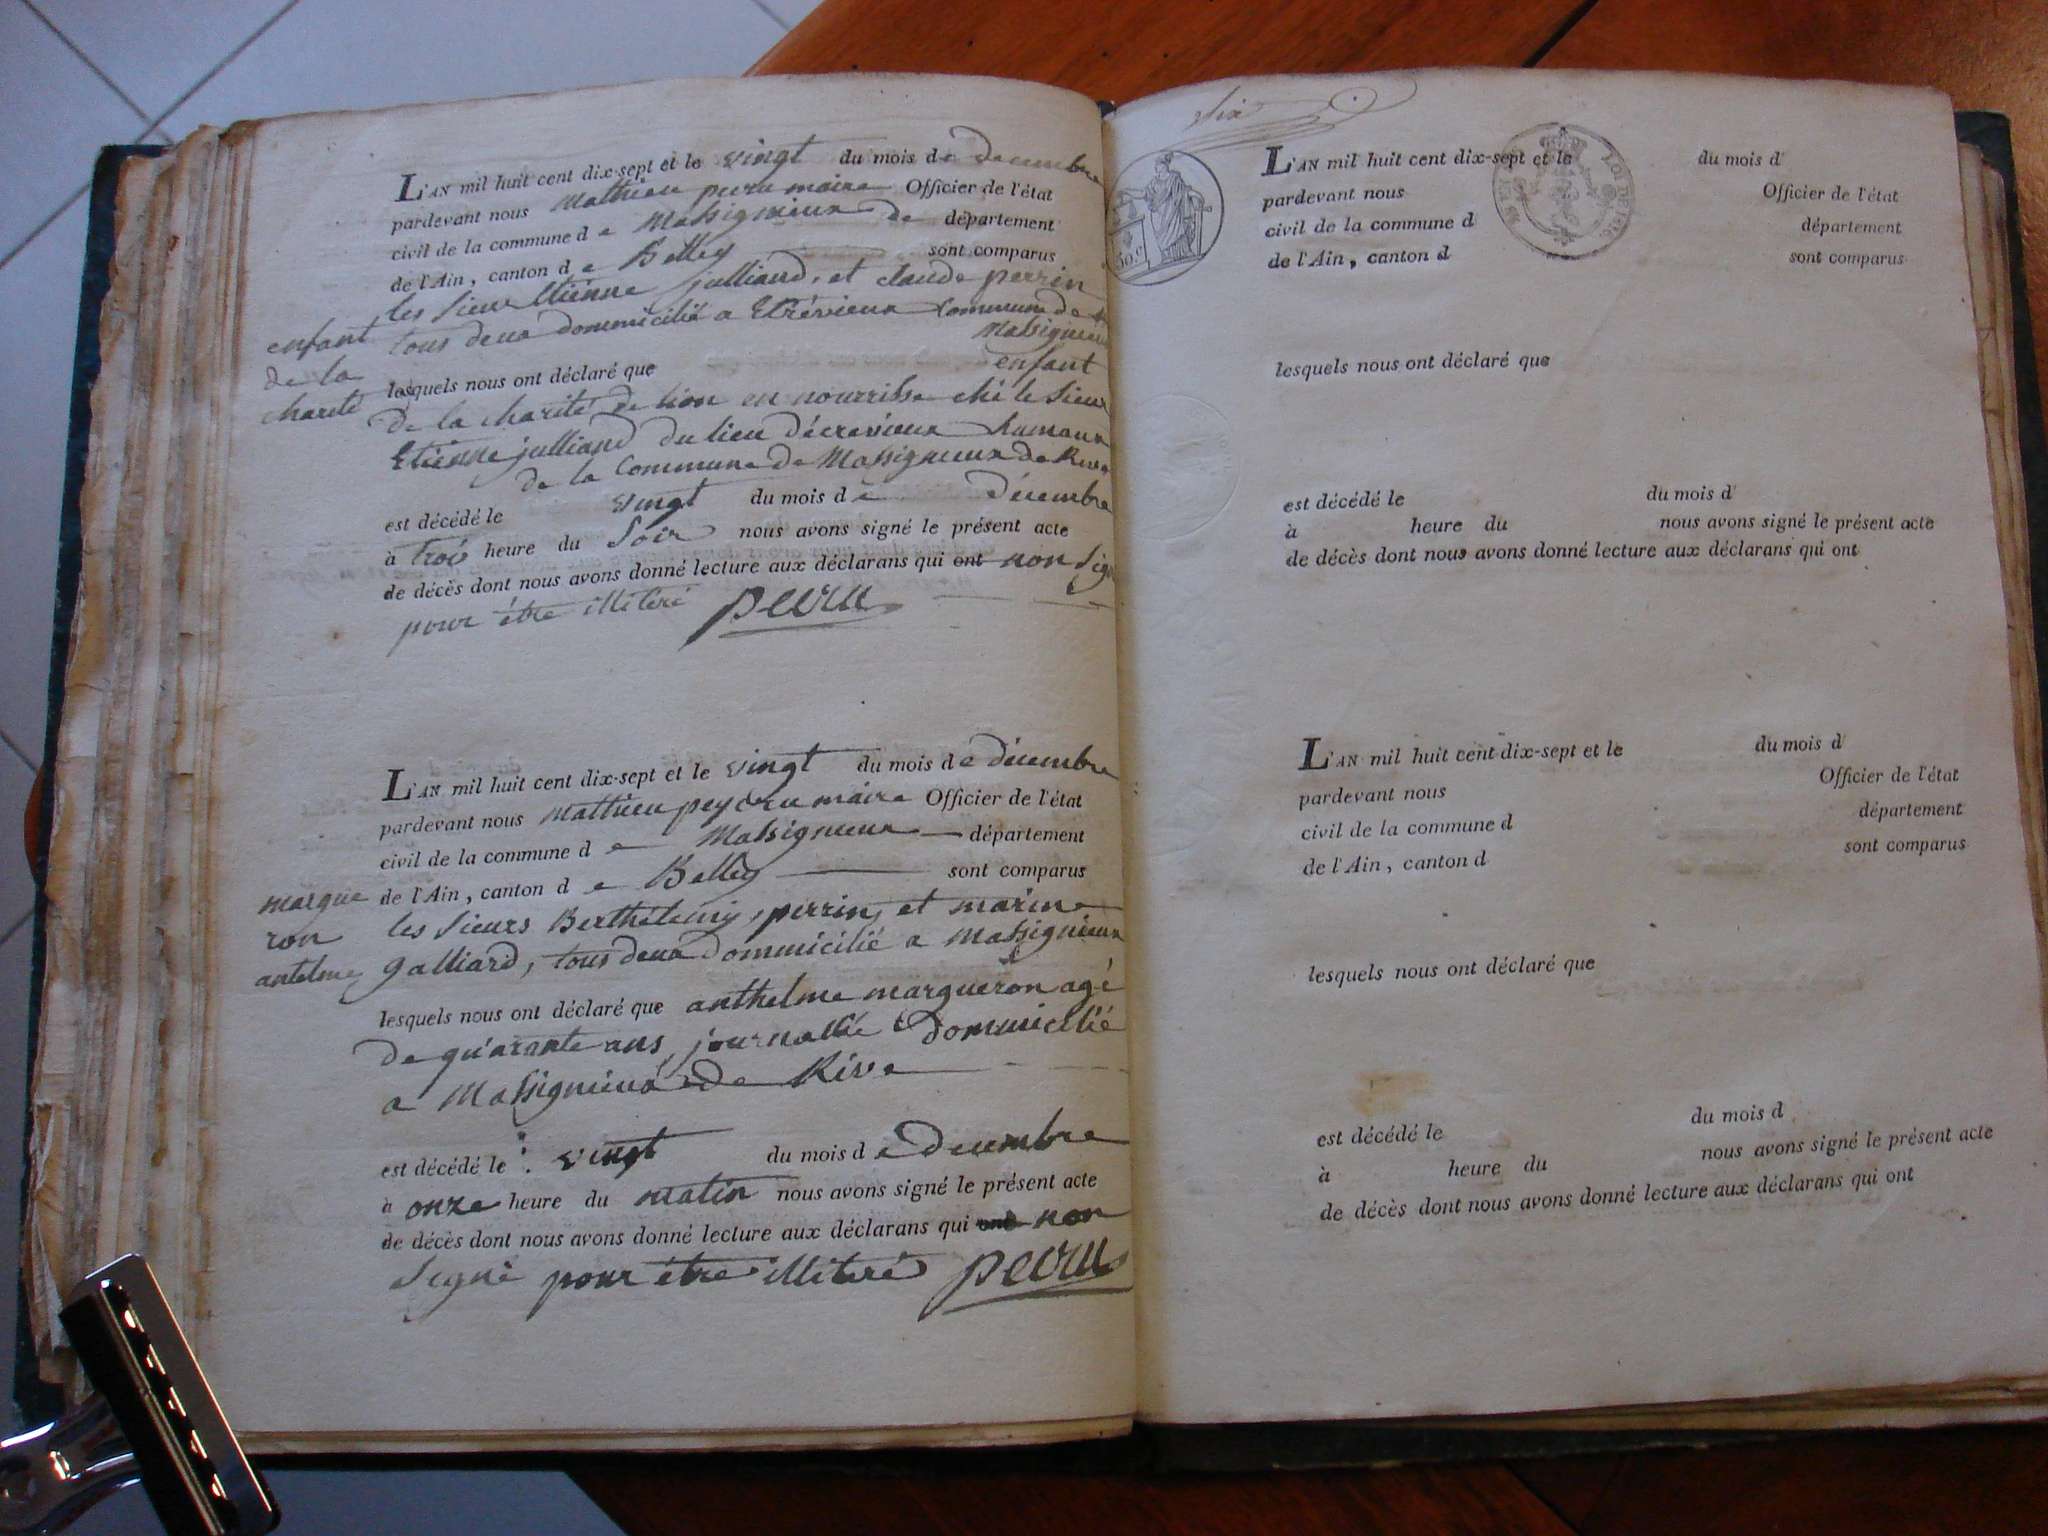 L'AN mil huit cent dix-sept et le vingt du mois de decembre
pardevant nous Mathieu peru maire Officier de l'état
civil de la commune de Massignieux de département
de l'Ain, canton de Belley sont comparus
les sieur Etienne julliard, et claude perrin
tous deux dommicilié a Etrévieux Commune de
Massigneux
enfant
de la
charité
lesquels nous ont déclaré que enfant
de la charité de lion en nourrisse ché le sieur
Etienne julliard du lieu d'écrevieux hamaux
de la Commune de Massigneux de Rive
est décédé le vingt du mois de décembre
à trois heure du Soir nous avons signé le présent acte
de décès dont nous avons donné lecture aux déclarans qui ont non Signé
pour être illiteré peyru
L'AN mil huit cent dix-sept et le vingt du mois de décembre
pardevant nous Mathieu peyeru maire Officier de l'état
civil de la commune de Massigneux département
de l'Ain, canton de Belley sont comparus
margue
ron
antelme
les sieurs Berthelemy, perrin, et marin
galliard, tous deux dommicilié a Massignieux
lesquels nous ont déclaré que anthelme margueron agé
de quarante ans, journallié dommicilié
a Massignieux de Rive
est décédé le vingt du mois de decembre
à onze heure du matin nous avons signé le présent acte
de décès dont nous avons donné lecture aux déclarans qui ont non
Signé pour être illiteré peyru
dix
50.c
L'AN mil huit cent dix-sept et le du mois d
pardevant nous Officier de l'état
civil de la commune d département
de l'Ain, canton d sont comparus
lesquels nous ont déclaré que
est décédé le du mois d
à heure du nous avons signé le présent acte
de décès dont nous avons donné lecture aux déclarans qui ont
L'AN mil huit cent dix-sept et le du mois d
pardevant nous Officier de l'état
civil de la commune d département
de l'Ain, canton d sont comparus
lesquels nous ont déclaré que
est décédé le du mois d
à heure du nous avons signé le présent acte
de décès dont nous avons donné lecture aux déclarans qui ont